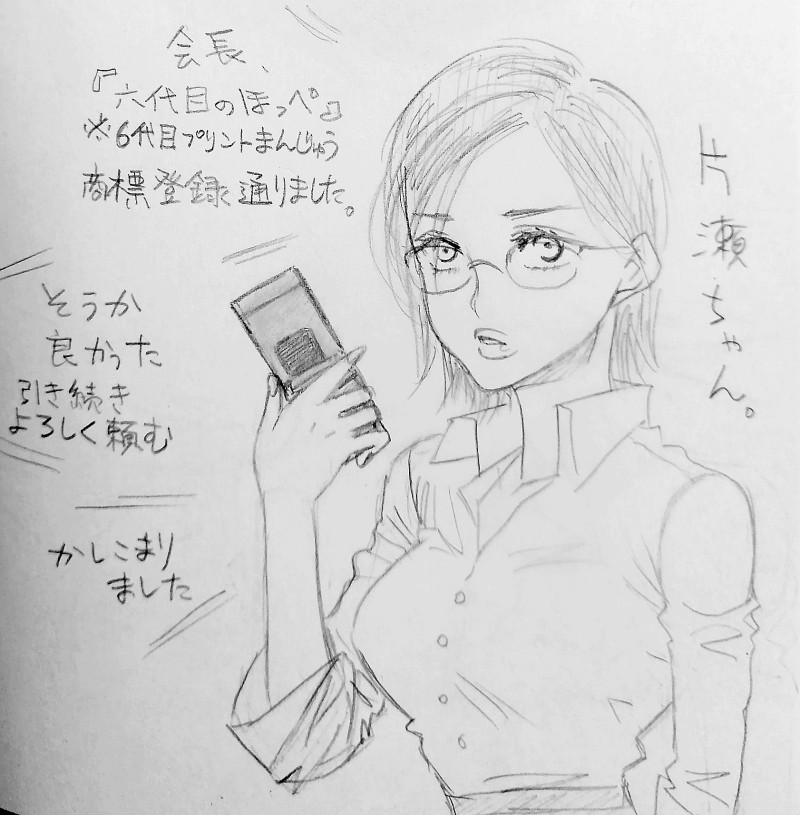 会長、
『六代目のほっぺ』
※6代目プリントまんじゅう
商標登録通りました。
そうか
良かった
引き続き
よろしく頼む
かしこまり
ました
片瀬ちゃん。